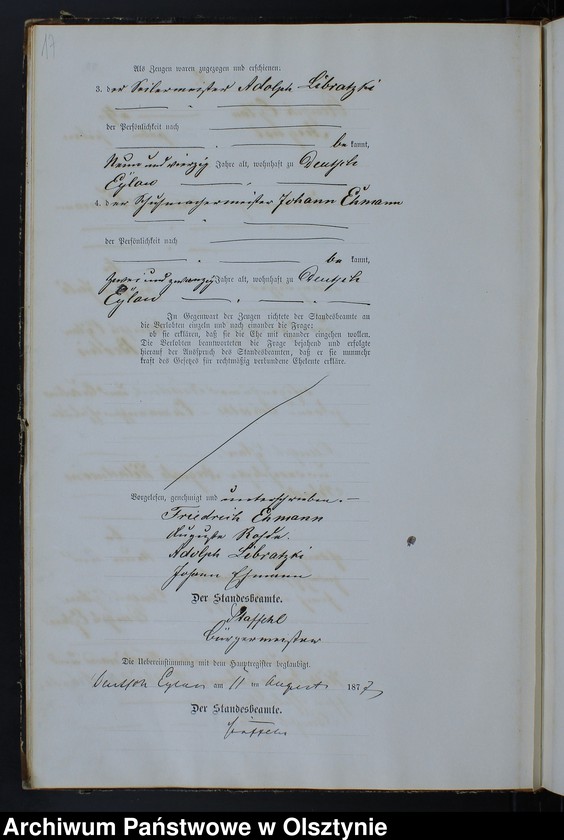 17
Als Zeugen waren zugezogen und erschienen:
3. der Seilermeister Adolph Libratzki
der Persönlichkeit nach
bekannt,
Neun und vierzig Jahre alt, wohnhaft zu Deutsch
Eylau
4. der Schuhmachermeister Johann Ehmann
der Persönlichkeit nach
bekannt,
zwei und zwanzig Jahre alt, wohnhaft zu Deutsch
Eylau
In Gegenwart der Zeugen richtete der Standesbeamte an
die Verlobten einzeln und nach einander die Frage:
ob sie erklären, daß sie die Ehe mit einander eingehen wollen.
Die Verlobten beantworteten die Frage bejahend und erfolgte
hierauf der Ausspruch des Standesbeamten, daß er sie nunmehr
kraft des Gesetzes für rechtmäßig verbundene Eheleute erkläre.
Vorgelesen, genehmigt und unterschrieben.
Friedrich Ehmann
Auguste
Adolph Libratzki
Johann Ehmann
Der Standesbeamte.
Bürgermeister
Die Uebereinstimmung mit dem Hauptregister beglaubigt.
Deutsch Eylau am 11 ten August 1877
Der Standesbeamte.
Archiwum Państwowe w Olsztynie